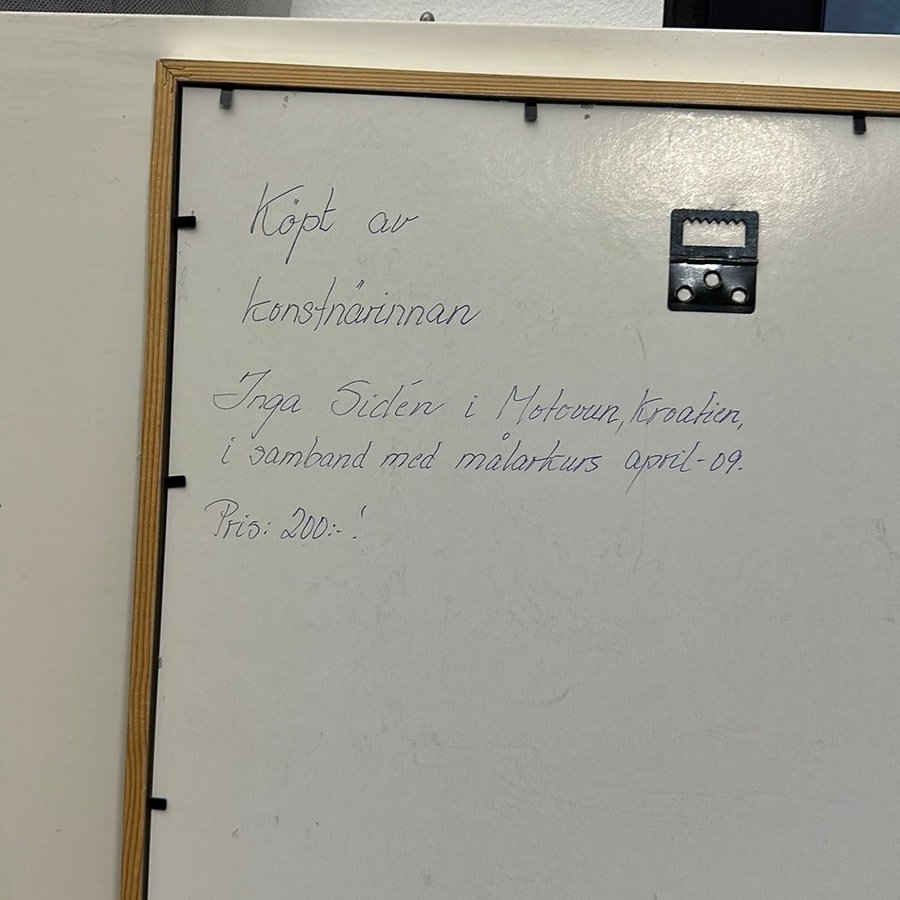 Köpt av
konstnärinnan
Inga Sidén i Motovun, Kroatien,
i samband med målarkurs april-09.
Pris: 200:-!